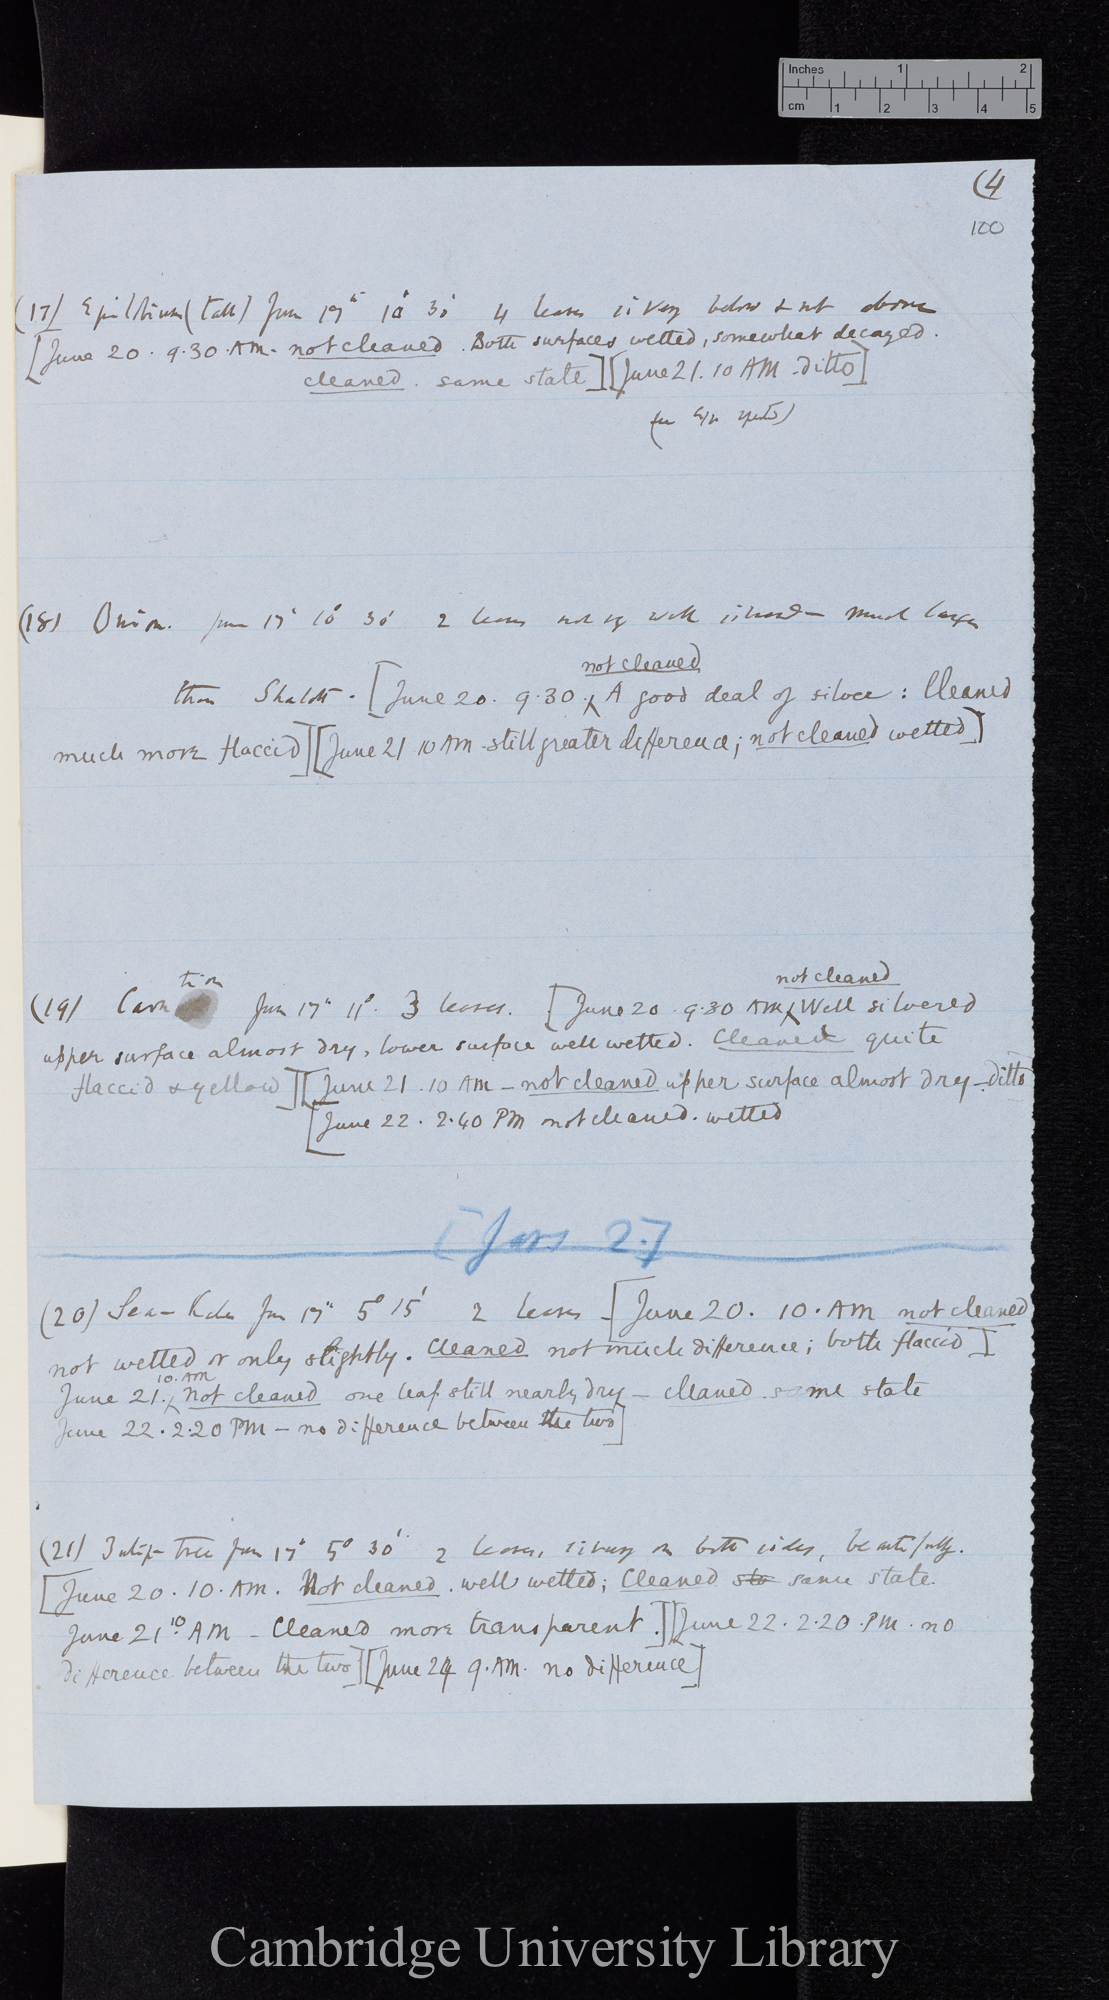 Inches 1 2
cm 1 2 3 4 5
(4
100
(17) Epilobium (tall) Jun 17th 10° 30' 4 leaves silvery below & not above
[June 20. 9.30 AM. not cleaned. Both surfaces wetted, somewhat decayed.
cleaned. same state] [June 21. 10 AM. ditto]
(18) Onion. June 17th 10° 30' 2 leaves not vy well silvered — much larger
not cleaned
than Shalott. [June 20. 9.30. ^ A good deal of silver: Cleaned
much more flaccid] [June 21 10 AM still greater difference; not cleaned wetted]
tion
not cleaned
(19) Carn Jun 17th 11°. 3 leaves. [June 20 9.30 AM ^ Well silvered
upper surface almost dry, lower surface well wetted. Cleaned quite
flaccid & yellow] [June 21. 10 AM — not cleaned upper surface almost dry — ditto
[June 22. 2.40 PM not cleaned. wetted
[Jars 2.]
(20) Sea-Kale Jun 17th 5° 15' 2 leaves — [June 20. 10. AM not cleaned
not wetted or only slightly. Cleaned not much difference; both flaccid]
10. AM
June 21. ^ not cleaned one leaf still nearly dry — cleaned same state
June 22. 2.20 PM — no difference between the two]
(21) Tulip-tree Jun 17th 5° 30' 2 leaves, silvery on both sides, beautifully.
[June 20. 10. AM. Not cleaned. well wetted; Cleaned sta same state.
June 21 10. AM — Cleaned more transparent.] [June 22. 2.20. PM. no
difference between the two] [June 24 9. AM. no difference]
Cambridge University Library